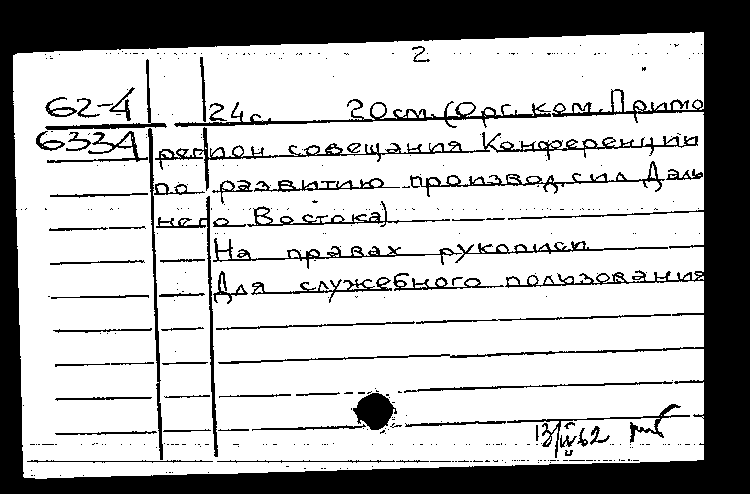 2
62-4 24с. 20см. (Орг. ком. Примо
6334 регион совещания Конференции
по развитию производ. сил Даль
него Востока).
На правах рукописи
Для служебного пользования
62